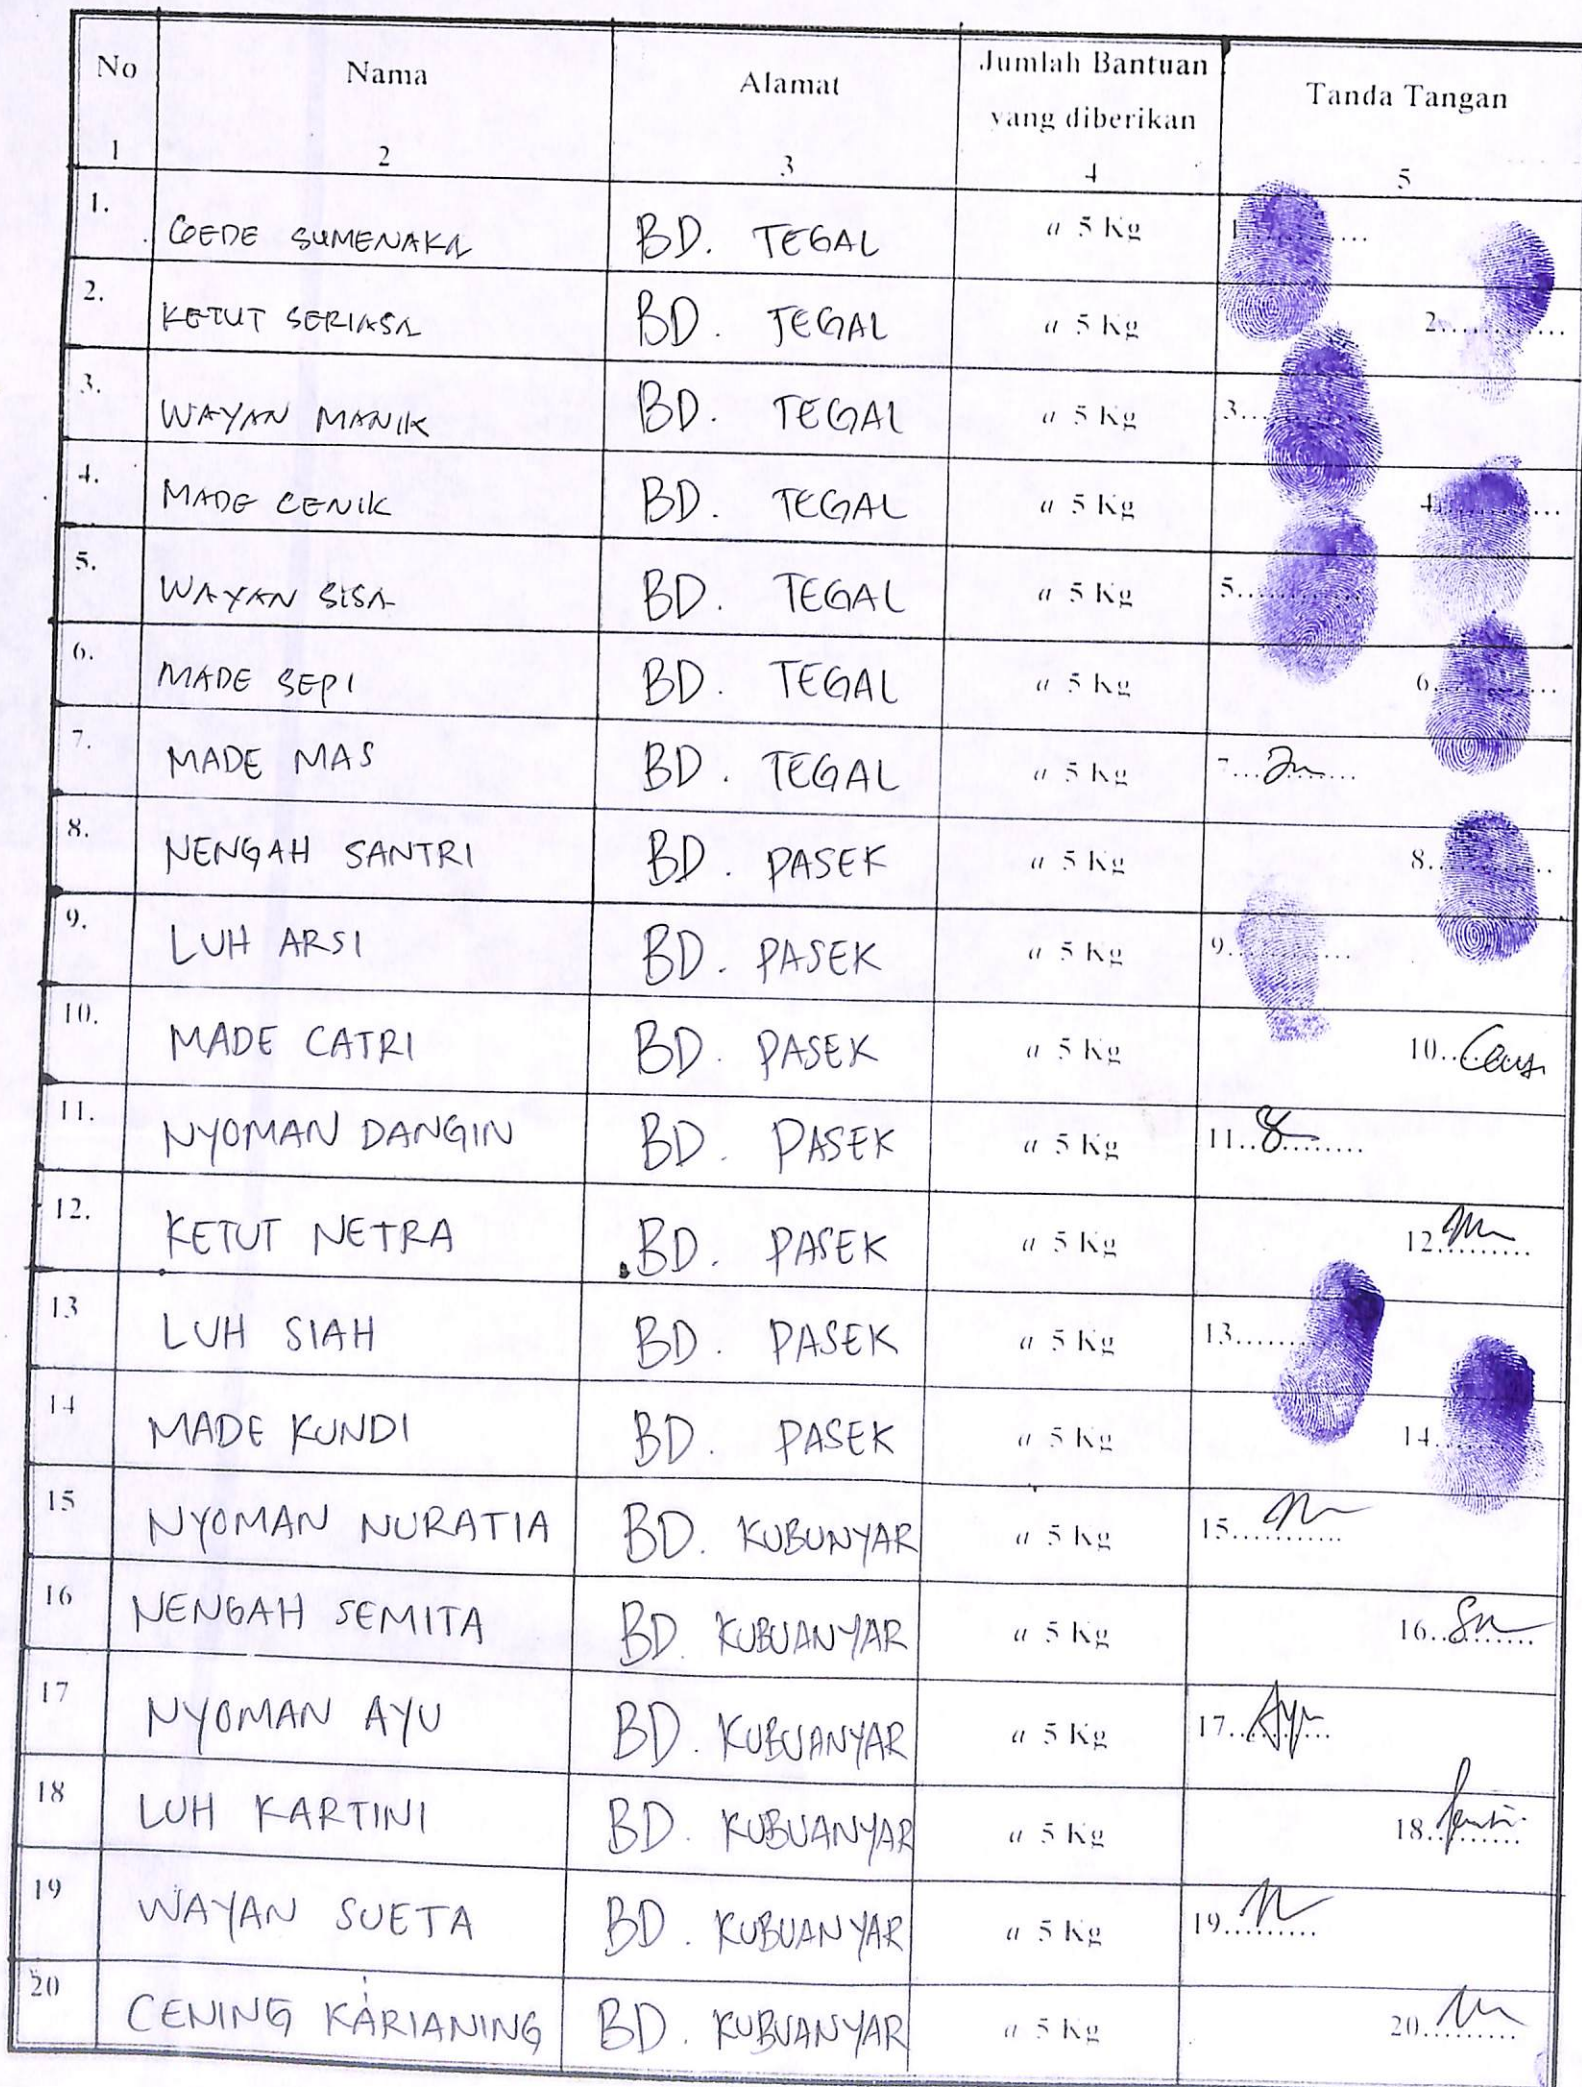 No Nama Alamat Jumlah Bantuan yang diberikan Tanda Tangan
1 2 3 4 5
1. GEDE SUMENAKA BD. TEGAL a 5 Kg 1............
2. KETUT SERIASA BD. TEGAL a 5 Kg 2............
3. WAYAN MANIK BD. TEGAL a 5 Kg 3............
4. MADE CENIK BD. TEGAL a 5 Kg 4............
5. WAYAN SISA BD. TEGAL a 5 Kg 5............
6. MADE SEPI BD. TEGAL a 5 Kg 6............
7. MADE MAS BD. TEGAL a 5 Kg 7............
8. NENGAH SANTRI BD. PASEK a 5 Kg 8............
9. LUH ARSI BD. PASEK a 5 Kg 9............
10. MADE CATRI BD. PASEK a 5 Kg 10............
11. NYOMAN DANGIN BD. PASEK a 5 Kg 11............
12. KETUT NETRA BD. PASEK a 5 Kg 12............
13 LUH SIAH BD. PASEK a 5 Kg 13............
14 MADE KUNDI BD. PASEK a 5 Kg 14............
15 NYOMAN NURATIA BD. KUBUNYAR a 5 Kg 15............
16 NENGAH SEMITA BD. KUBUANYAR a 5 Kg 16............
17 NYOMAN AYU BD. KUBUANYAR a 5 Kg 17............ Ayu
18 LUH KARTINI BD. KUBUANYAR a 5 Kg 18............
19 WAYAN SUETA BD. KUBUANYAR a 5 Kg 19............
20 CENING KARIANING BD. KUBUANYAR a 5 Kg 20............